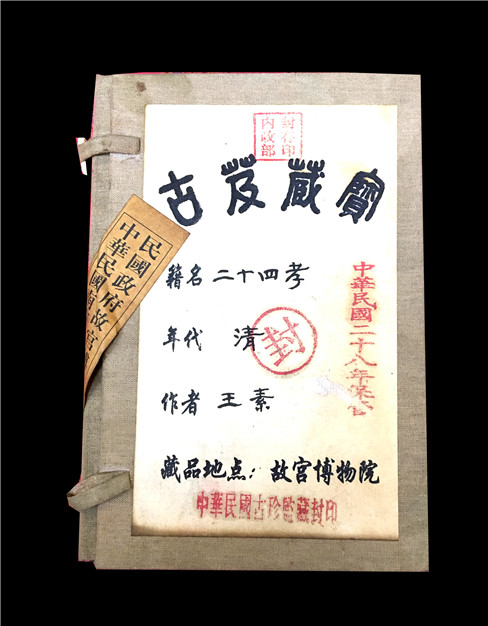 封存印
内政部
古芨蔵寶
民國政府故宮
中華民國
籍名 二十四孝
年代 清
封
作者 王素
中華民國二十八年保管
藏品地点：故宫博物院
中華民國古珍監藏封印